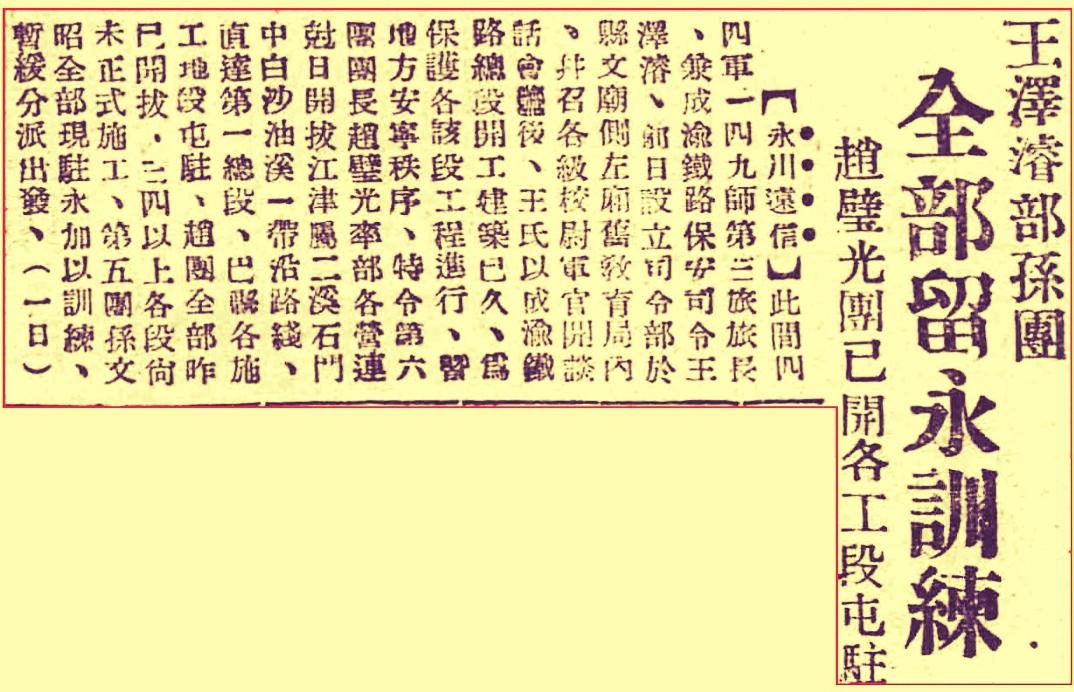 王澤濬部孫團
全部留永訓練
趙璧光團已開各工段屯駐
【永川遠信】此間四
四軍一四九師第三旅旅長
、兼成渝鐵路保安司令王
澤濬、前日設立司令部於
縣文廟側左廂舊敎育局內
、幷召各級校尉軍官開談
話會後、王氏以成渝鐵
路總段開工建築已久、爲
保護各該段工程進行、暨
地方安寧秩序、特令第六
團團長趙璧光率部各營連
尅日開拔江津屬二溪石門
中白沙油溪一帶沿路綫、
直達第一總段、巴縣各施
工地段屯駐、趙團全部昨
已開拔、三四以上各段尙
未正式施工、第五團孫文
昭全部現駐永加以訓練、
暫緩分派出發、（一日）